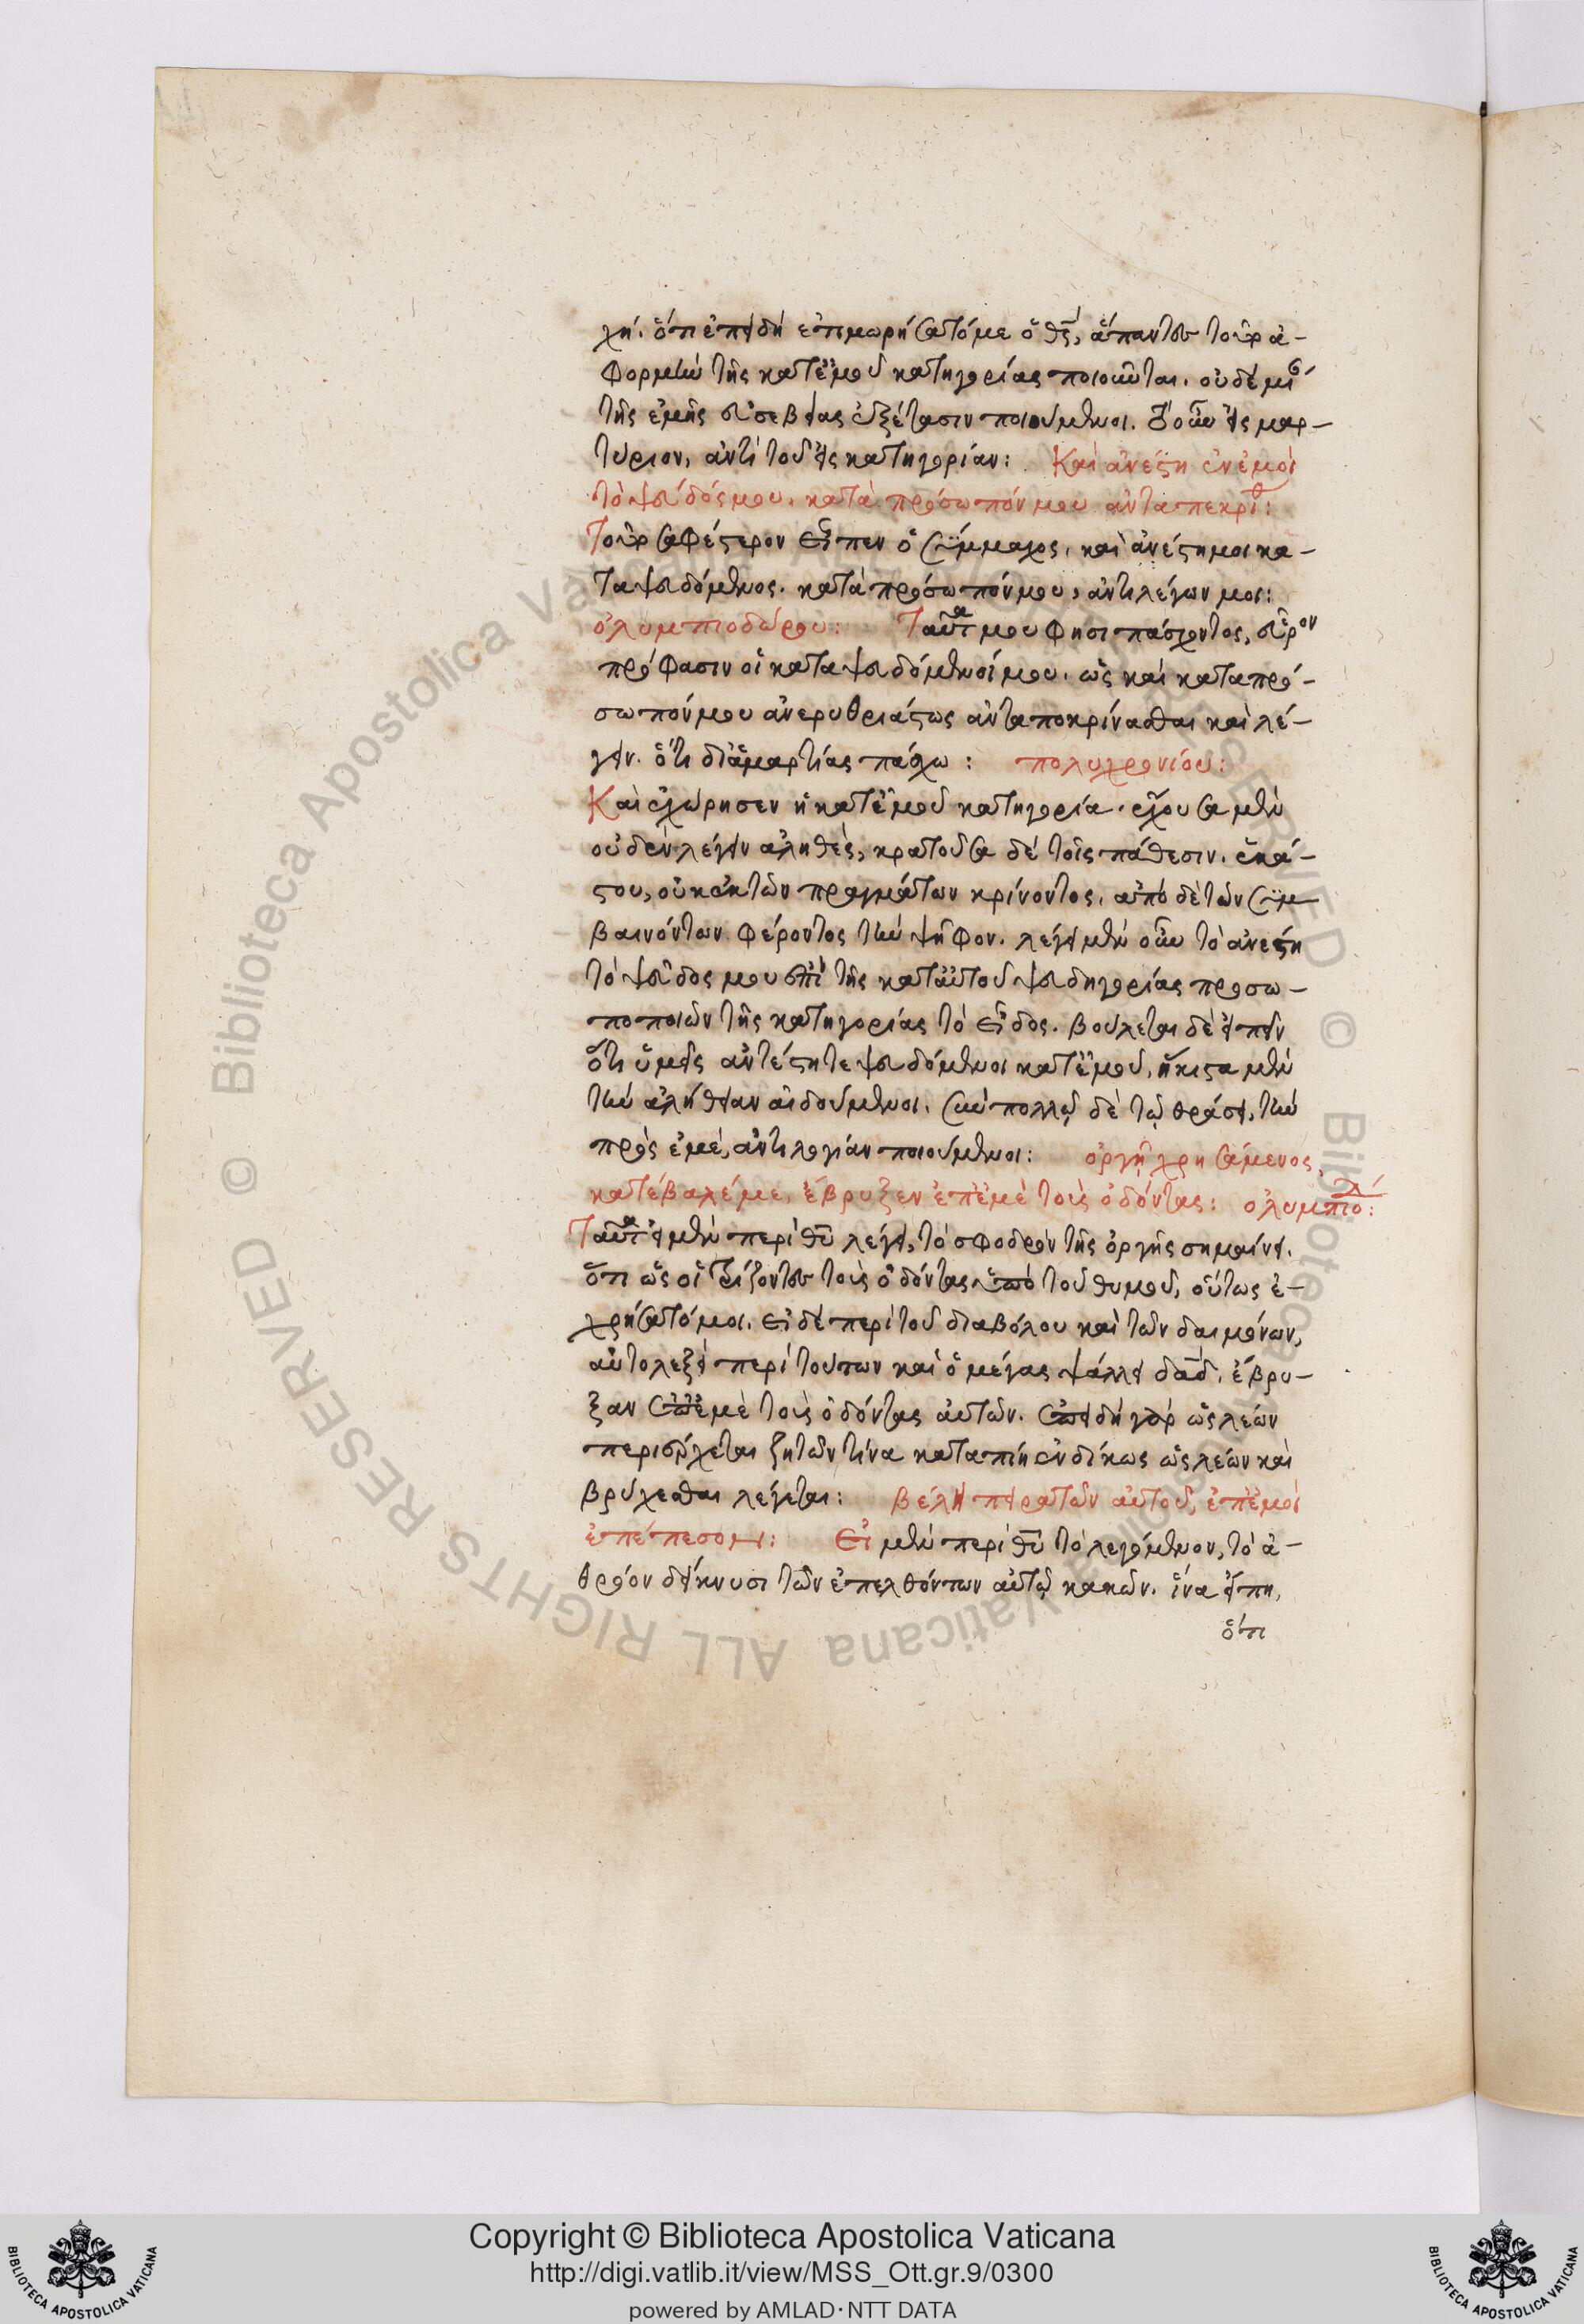 χή. ὅτι ἐπειδὴ ἐτιμωρήσατό με ὁ θς, ἅπαντες τοῦτο ἀ-
φορμὴν τῆς κατ' ἐμοῦ κατηγορίας ποιοῦνται. οὐδεμί
τῆς ἐμῆς εὐσεβείας ἐξέτασιν ποιούμενοι. τὸ οὖν εἰς μαρ-
τύριον, ἀντὶ τοῦ εἰς κατηγορίαν: Καὶ ἀνέστη ἐν ἐμοὶ
τὸ ψεῦδός μου. κατὰ πρόσωπόν μου ἀνταπεκρίθ:
Τοῦτο σαφέστερον εἶπεν ὁ Σύμμαχος, καὶ ἀνέστη μοι κα-
ταψευδόμενος. κατὰ πρόσωπόν μου, ἀντιλέγων μοι:
ὀλυμπιοδώρου: Ταῦτα μου φησι πάσχοντος, εὗρον
πρόφασιν οἱ καταψευδόμενοί μου. ὡς καὶ κατὰ πρό-
σωπόν μου ἀνερυθριάστως ἀνταποκρίνασθαι καὶ λέ-
γειν. ὅτι δι' ἁμαρτίας πάσχω: πολυχρονίου:
Καὶ ἐχώρησεν ἡ κατ' ἐμοῦ κατηγορία. ἔχουσα μὲν
οὐδὲν λέγειν ἀληθές, κρατοῦσα δὲ τοῖς πάθεσιν. ἑκά-
στου, οὐκ ἐκ τῶν πραγμάτων κρίνοντος, ἀπὸ δὲ τῶν συμ
βαινόντων φέροντος τὴν ψῆφον. λέγει μὲν οὖν τὸ ἀνέστη
τὸ ψεῦδος μου ἐπὶ τῆς κατ' αὐτοῦ ψευδηγορίας προσω-
ποποιῶν τῆς κατηγορίας τὸ εἶδος. βούλεται δὲ εἰπεῖν
ὅτι ὑμεῖς ἀντέστητε ψευδόμενοι κατ' ἐμοῦ, ἥκιστα μὲν
τὴν ἀλήθειαν αἰδούμενοι. σὺν πολλῷ δὲ τῷ θράσει, τὴν
πρὸς ἐμὲ, ἀντιλογίαν ποιούμενοι: ὀργῇ χρησάμενος,
κατέβαλέ με, ἔβρυξεν ἐπ' ἐμὲ τοὺς ὀδόντας: ὀλυμπιο:
Ταῦτα εἰ μὲν περὶ θῦ λέγει, τὸ σφοδρὸν τῆς ὀργῆς σημαίνει.
ὅτι ὡς οἱ τρίζοντες τοὺς ὀδόντας ὑπὸ τοῦ θυμοῦ, οὕτως ἐ-
χρήσατό μοι. εἰ δὲ περὶ τοῦ διαβόλου καὶ τῶν δαιμόνων,
αὐτολεξεὶ περὶ τούτων καὶ ὁ μέγας ψάλλει δαδ. ἔβρυ-
ξαν ἐπ' ἐμὲ τοὺς ὀδόντας αὐτῶν. ἐπειδὴ γὰρ ὡς λέων
περιέρχεται ζητῶν τίνα καταπίῃ ἐνδίκως ὡς λέων καὶ
βρύχεσθαι λέγεται: βέλη πειρατῶν αὐτοῦ, ἐπ' ἐμοὶ
ἐπέπεσον: Εἰ μὲν περὶ θῦ τὸ λεγόμενον, τὸ ἀ-
θρόον δείκνυσι τῶν ἐπελθόντων αὐτῷ κακῶν. ἵνα εἴπῃ,
ὅτι
Copyright © Biblioteca Apostolica Vaticana
http://digi.vatlib.it/view/MSS_Ott.gr.9/0300
powered by AMLAD·NTT DATA